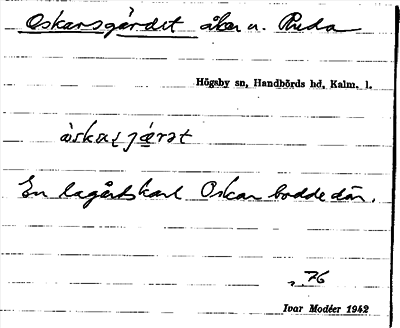 Oskarsgärdet åker u. Ruda
Högsby sn, Handbörds hd, Kalm. l.
En lagårdskarl Oskar bodde där.
s. 76
Ivar Modéer 1942